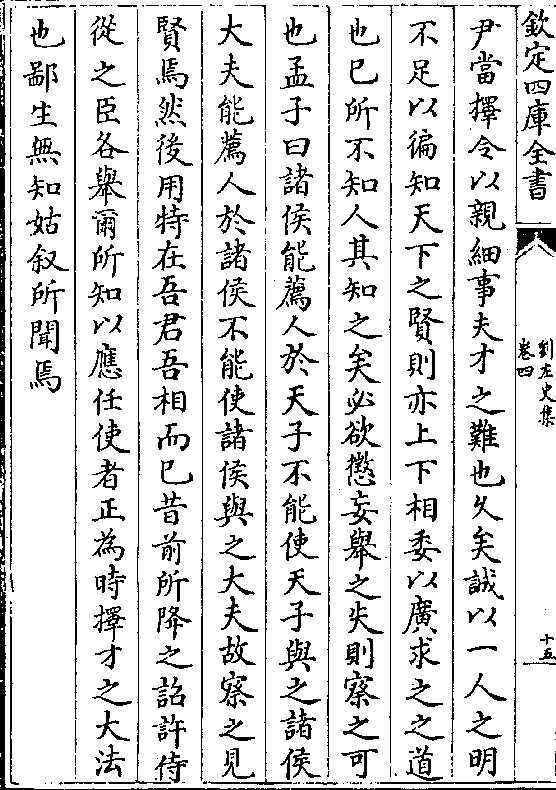 欽定四庫全書
劉左史集
卷四
十五
尹當擇令以親細事夫才之難也久矣誠以一人之明
不足以徧知天下之賢則亦上下相委以廣求之之道
也已所不知人其知之矣必欲懲妄舉之失則察之可
也孟子曰諸侯能薦人於天子不能使天子與之諸侯
大夫能薦人於諸侯不能使諸侯與之大夫故察之見
賢焉然後用特在吾君吾相而已昔前所降之詔許侍
從之臣各舉爾所知以應任使者正為時擇才之大法
也鄙生無知姑叙所聞焉